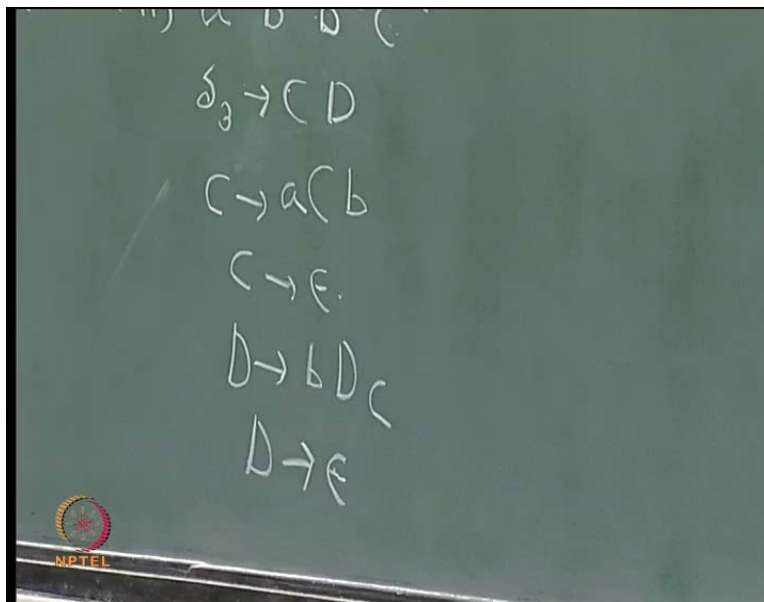 a b b c
S₃ → C D
C → a C b
C → ϵ.
D → b D c
D → ϵ
NPTEL